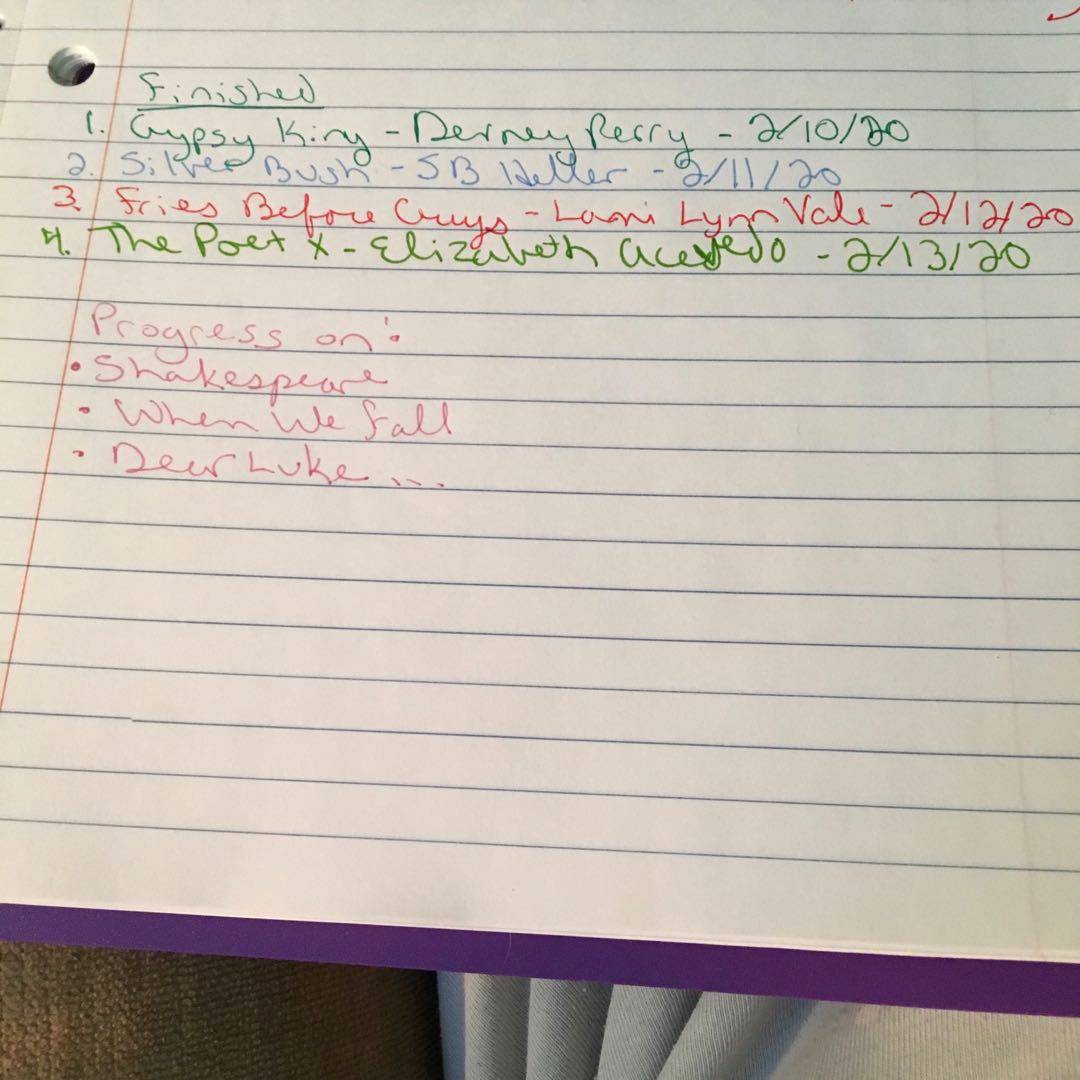 Finished
1. Gypsy King - Devney Perry - 2/10/20
2. Silver Bush - SB Heller - 2/11/20
3. Fries Before Guys - Lani Lynn Vale - 2/12/20
4. The Poet X - Elizabeth Acevedo - 2/13/20
Progress on:
• Shakespeare
• When We Fall
• Dear Luke ...